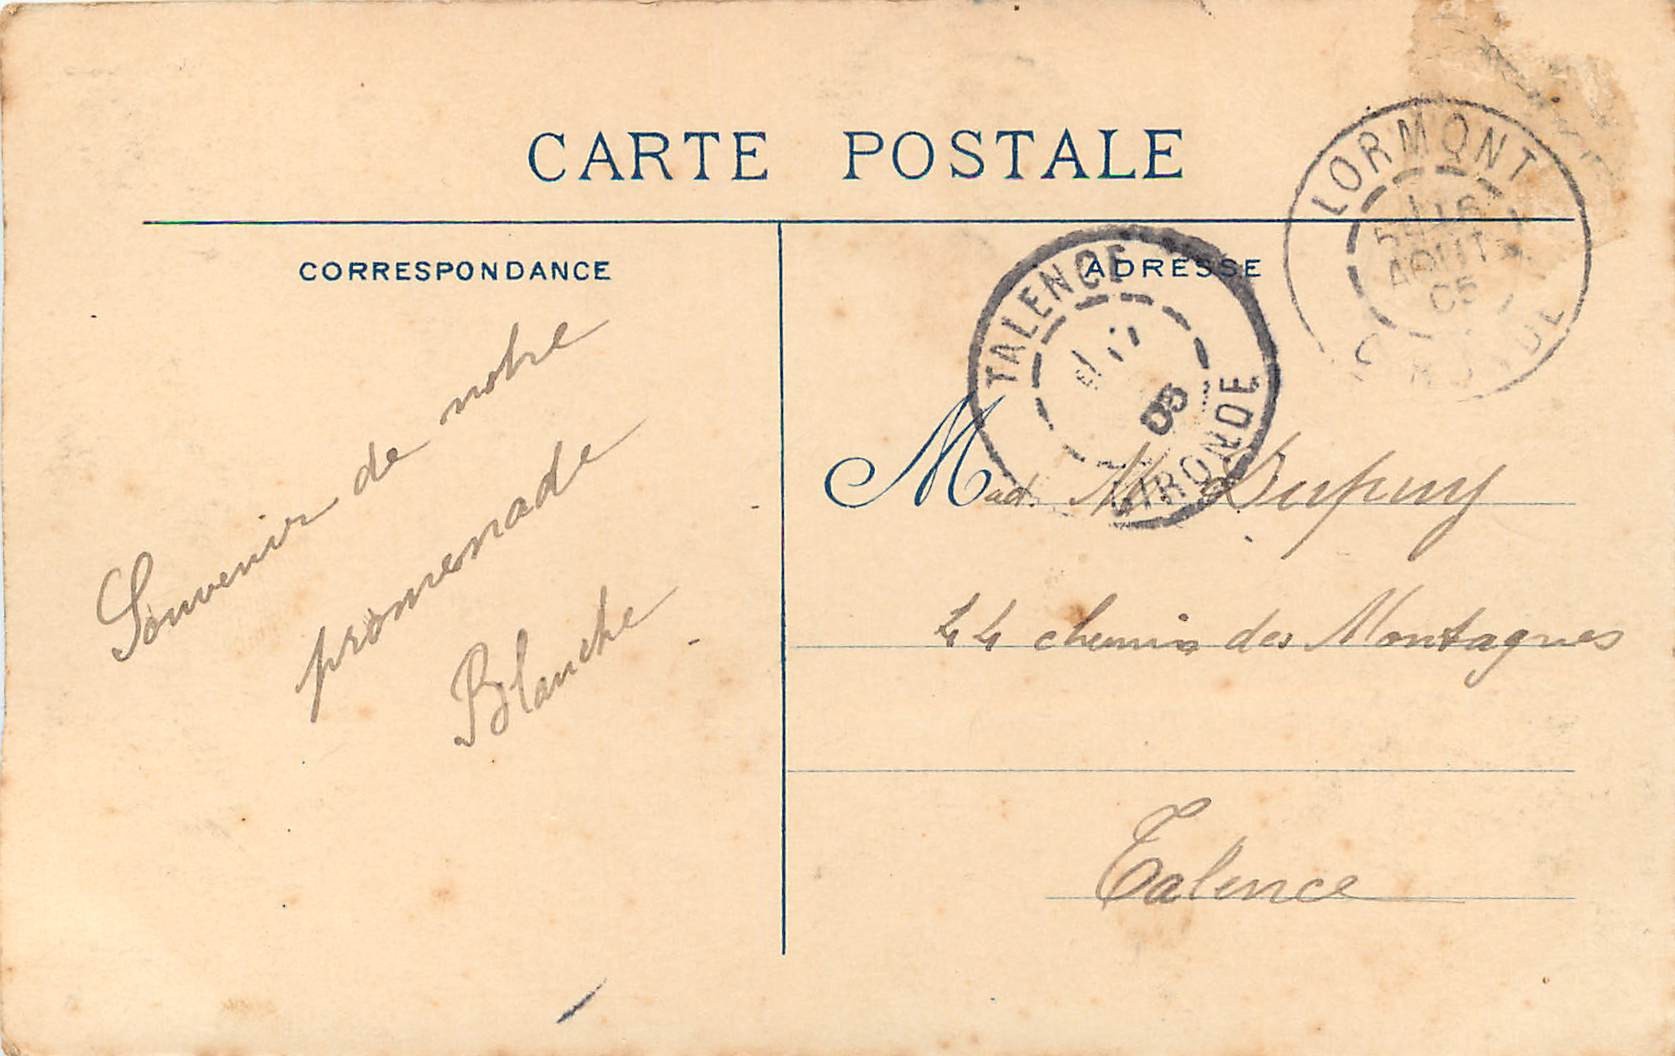 CARTE POSTALE
CORRESPONDANCE
ADRESSE
LORMONT
16
AOUT
05
GIRONDE
TALENCE
05
GIRONDE
Souvenir de notre
promenade
Blanche
Mad. M Dupuy
44 chemin des Montagnes
Talence